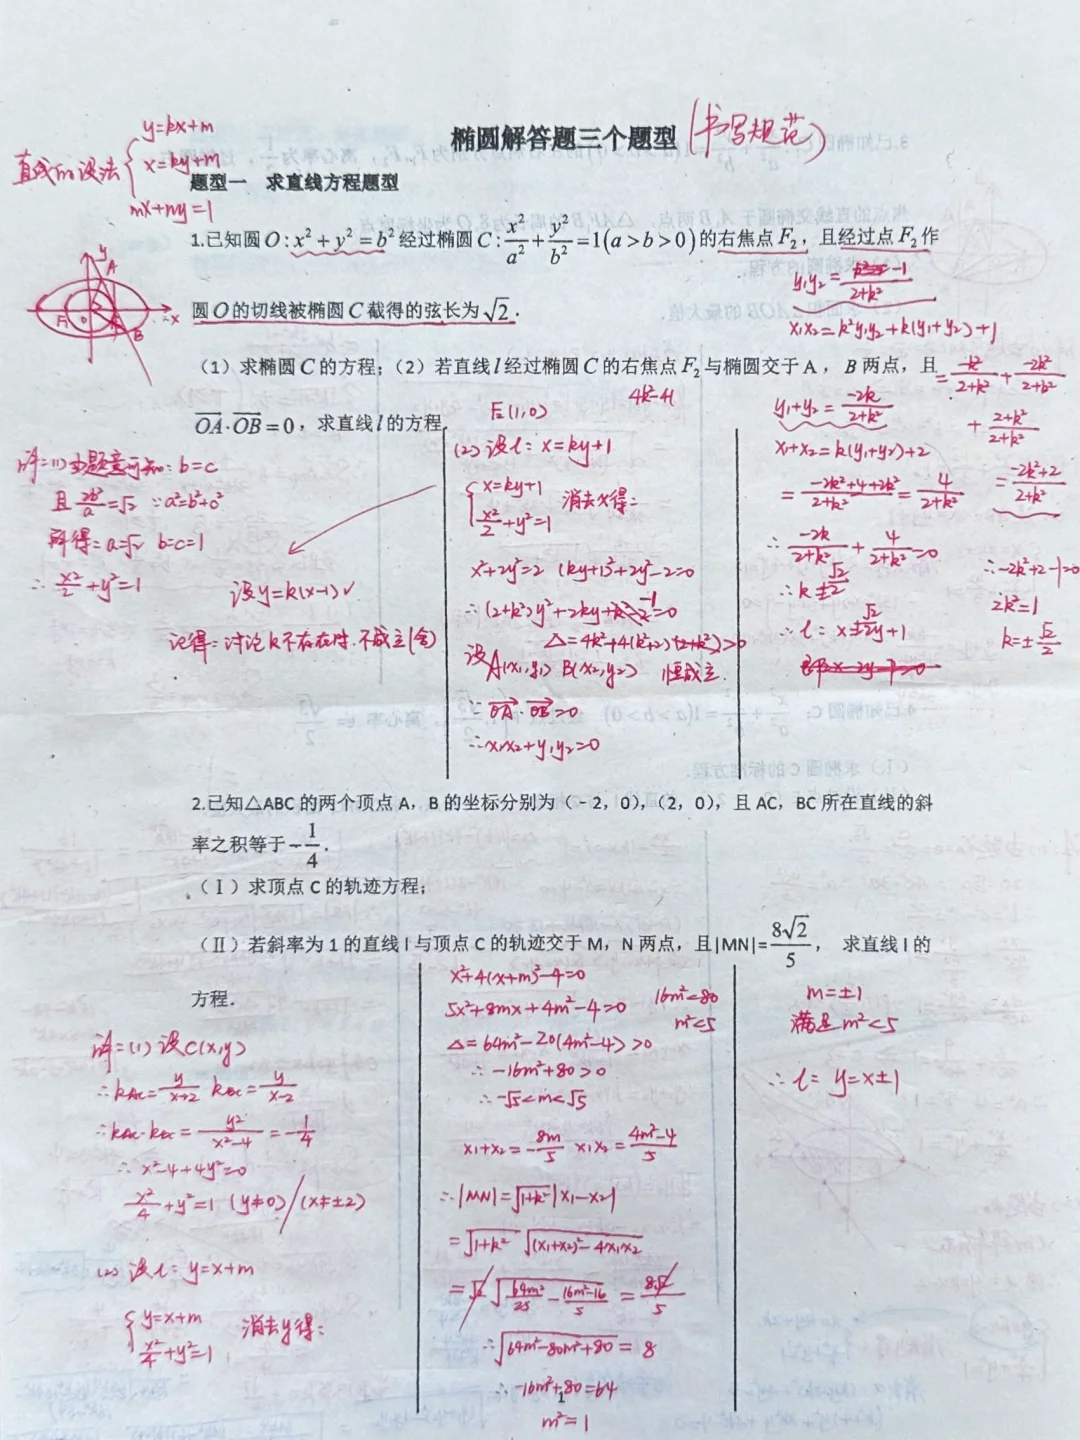 椭圆解答题三个题型 (书写规范)
直线的设法 { y=kx+m
x=ky+m
mx+ny=1
题型一 求直线方程题型
1.已知圆O:x²+y²=b²经过椭圆C:x²/a²+y²/b²=1(a>b>0)的右焦点F₂，且经过点F₂作
圆O的切线被椭圆C截得的弦长为√2.
（1）求椭圆C的方程;（2）若直线l经过椭圆C的右焦点F₂与椭圆交于A，B两点，且
OA·OB=0，求直线l的方程.
y
A
F₁ O
x
B
解:(1)由题意可知: b=c
且 2b²/a=√2 ∵a²=b²+c²
解得: a=√2 b=c=1
∴ x²/2+y²=1
设y=k(x-1)√
记得:讨论k不存在时.不成立(舍)
F₂(1,0)
(2)设l: x=ky+1
{ x=ky+1
x²/2+y²=1 消去x得:
x²+2y²=2 (ky+1)²+2y²-2=0
∴(2+k²)y²+2ky-1=0
△=4k²+4(k²+2)>0
设A(x₁,y₁) B(x₂,y₂) 恒成立.
∵OA·OB=0
∴x₁x₂+y₁y₂=0
y₁y₂=-1/(2+k²)
x₁x₂=k²y₁y₂+k(y₁+y₂)+1
=-k²/(2+k²)+-2k²/(2+k²)
+(2+k²)/(2+k²)
=(-2k²+2)/(2+k²)
y₁+y₂=-2k/(2+k²)
x₁+x₂=k(y₁+y₂)+2
=(-2k²+4+2k²)/(2+k²)=4/(2+k²)
∴-2k/(2+k²)+4/(2+k²)=0
∴k=±√2/2
∴l: x=±√2/2y+1
∴-2k²+2-1=0
2k²=1
k=±√2/2
2.已知△ABC的两个顶点A，B的坐标分别为（-2，0），（2，0），且AC，BC所在直线的斜
率之积等于-1/4.
（Ⅰ）求顶点C的轨迹方程;
（Ⅱ）若斜率为1的直线l与顶点C的轨迹交于M，N两点，且|MN|=8√2/5， 求直线l的
方程.
解:(1)设C(x,y)
∴kAC=y/(x+2) kBC=y/(x-2)
∴kAC·kBC=y²/(x²-4)=-1/4
∴x²-4+4y²=0
x²/4+y²=1 (y≠0)/(x≠±2)
(2)设l: y=x+m
{ y=x+m
x²/4+y²=1, 消去y得:
x²+4(x+m)²-4=0
5x²+8mx+4m²-4=0
△=64m²-20(4m²-4)>0
∴-16m²+80>0
∴-√5<m<√5
16m²<80
m²<5
x₁+x₂=-8m/5 x₁x₂=(4m²-4)/5
∴|MN|=√(1+k²)|x₁-x₂|
=√(1+k²) √((x₁+x₂)²-4x₁x₂)
=√2 √(64m²/25-(16m²-16)/5)=8√2/5
∴√(64m²-80m²+80)=8
∴-16m²+80=64
m²=1
m=±1
满足m²<5
∴l: y=x±1
1